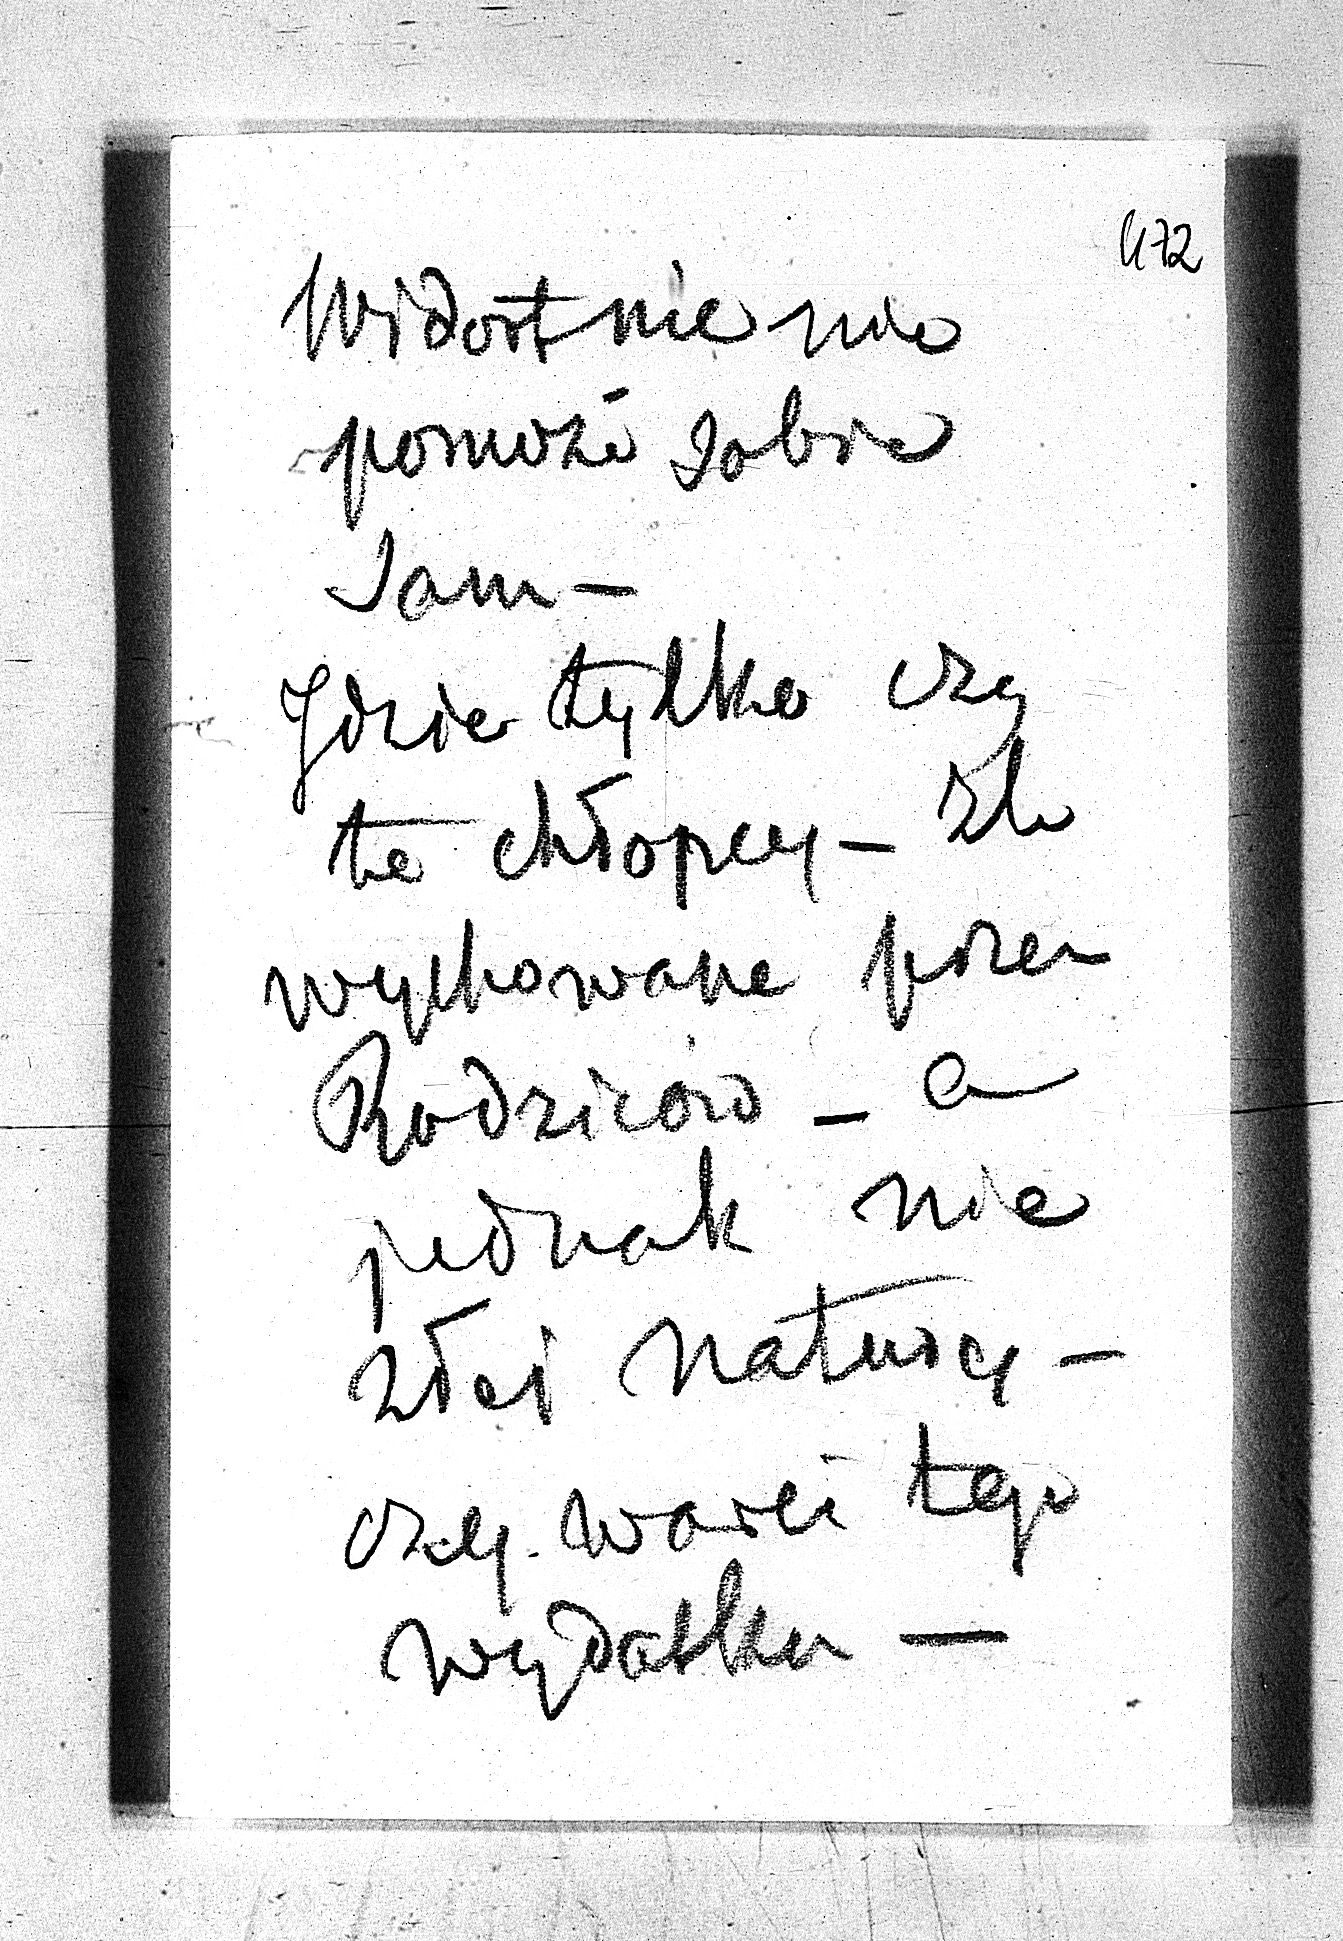 472
Widoctnie nie
pomoże sobie
Sam –
Idzie tylko czy
te chłopcy – źle
wychowane przez
Rodziców – a
jednak nie
złej natury –
czy warci tego
wydatku —